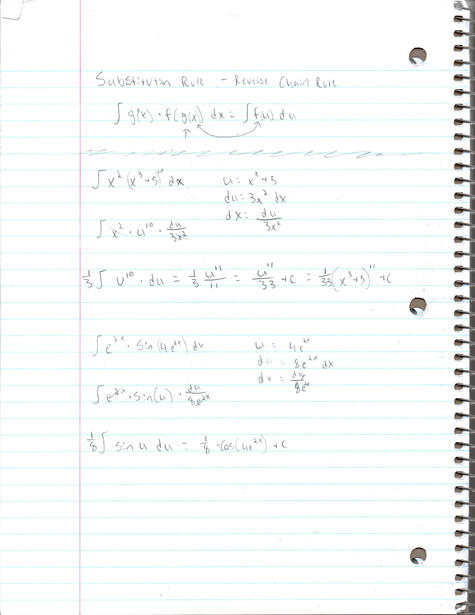 Substitution Rule - Reverse Chain Rule
∫ g'(x) · f(g(x)) dx = ∫ f(u) du
∫ x² (x³+5)¹⁰ dx
u = x³+5
du = 3x² dx
dx = du/3x²
∫ x² · u¹⁰ · du/3x²
1/3 ∫ u¹⁰ · du = 1/3 u¹¹/11 = u¹¹/33 + C = 1/33 (x³+5)¹¹ + C
∫ e²ˣ · sin(4e²ˣ) dx
u = 4e²ˣ
du = 8e²ˣ dx
dx = du/8e²ˣ
∫ e²ˣ · sin(u) · du/8e²ˣ
1/8 ∫ sin u du = 1/8 -cos(4e²ˣ) + C